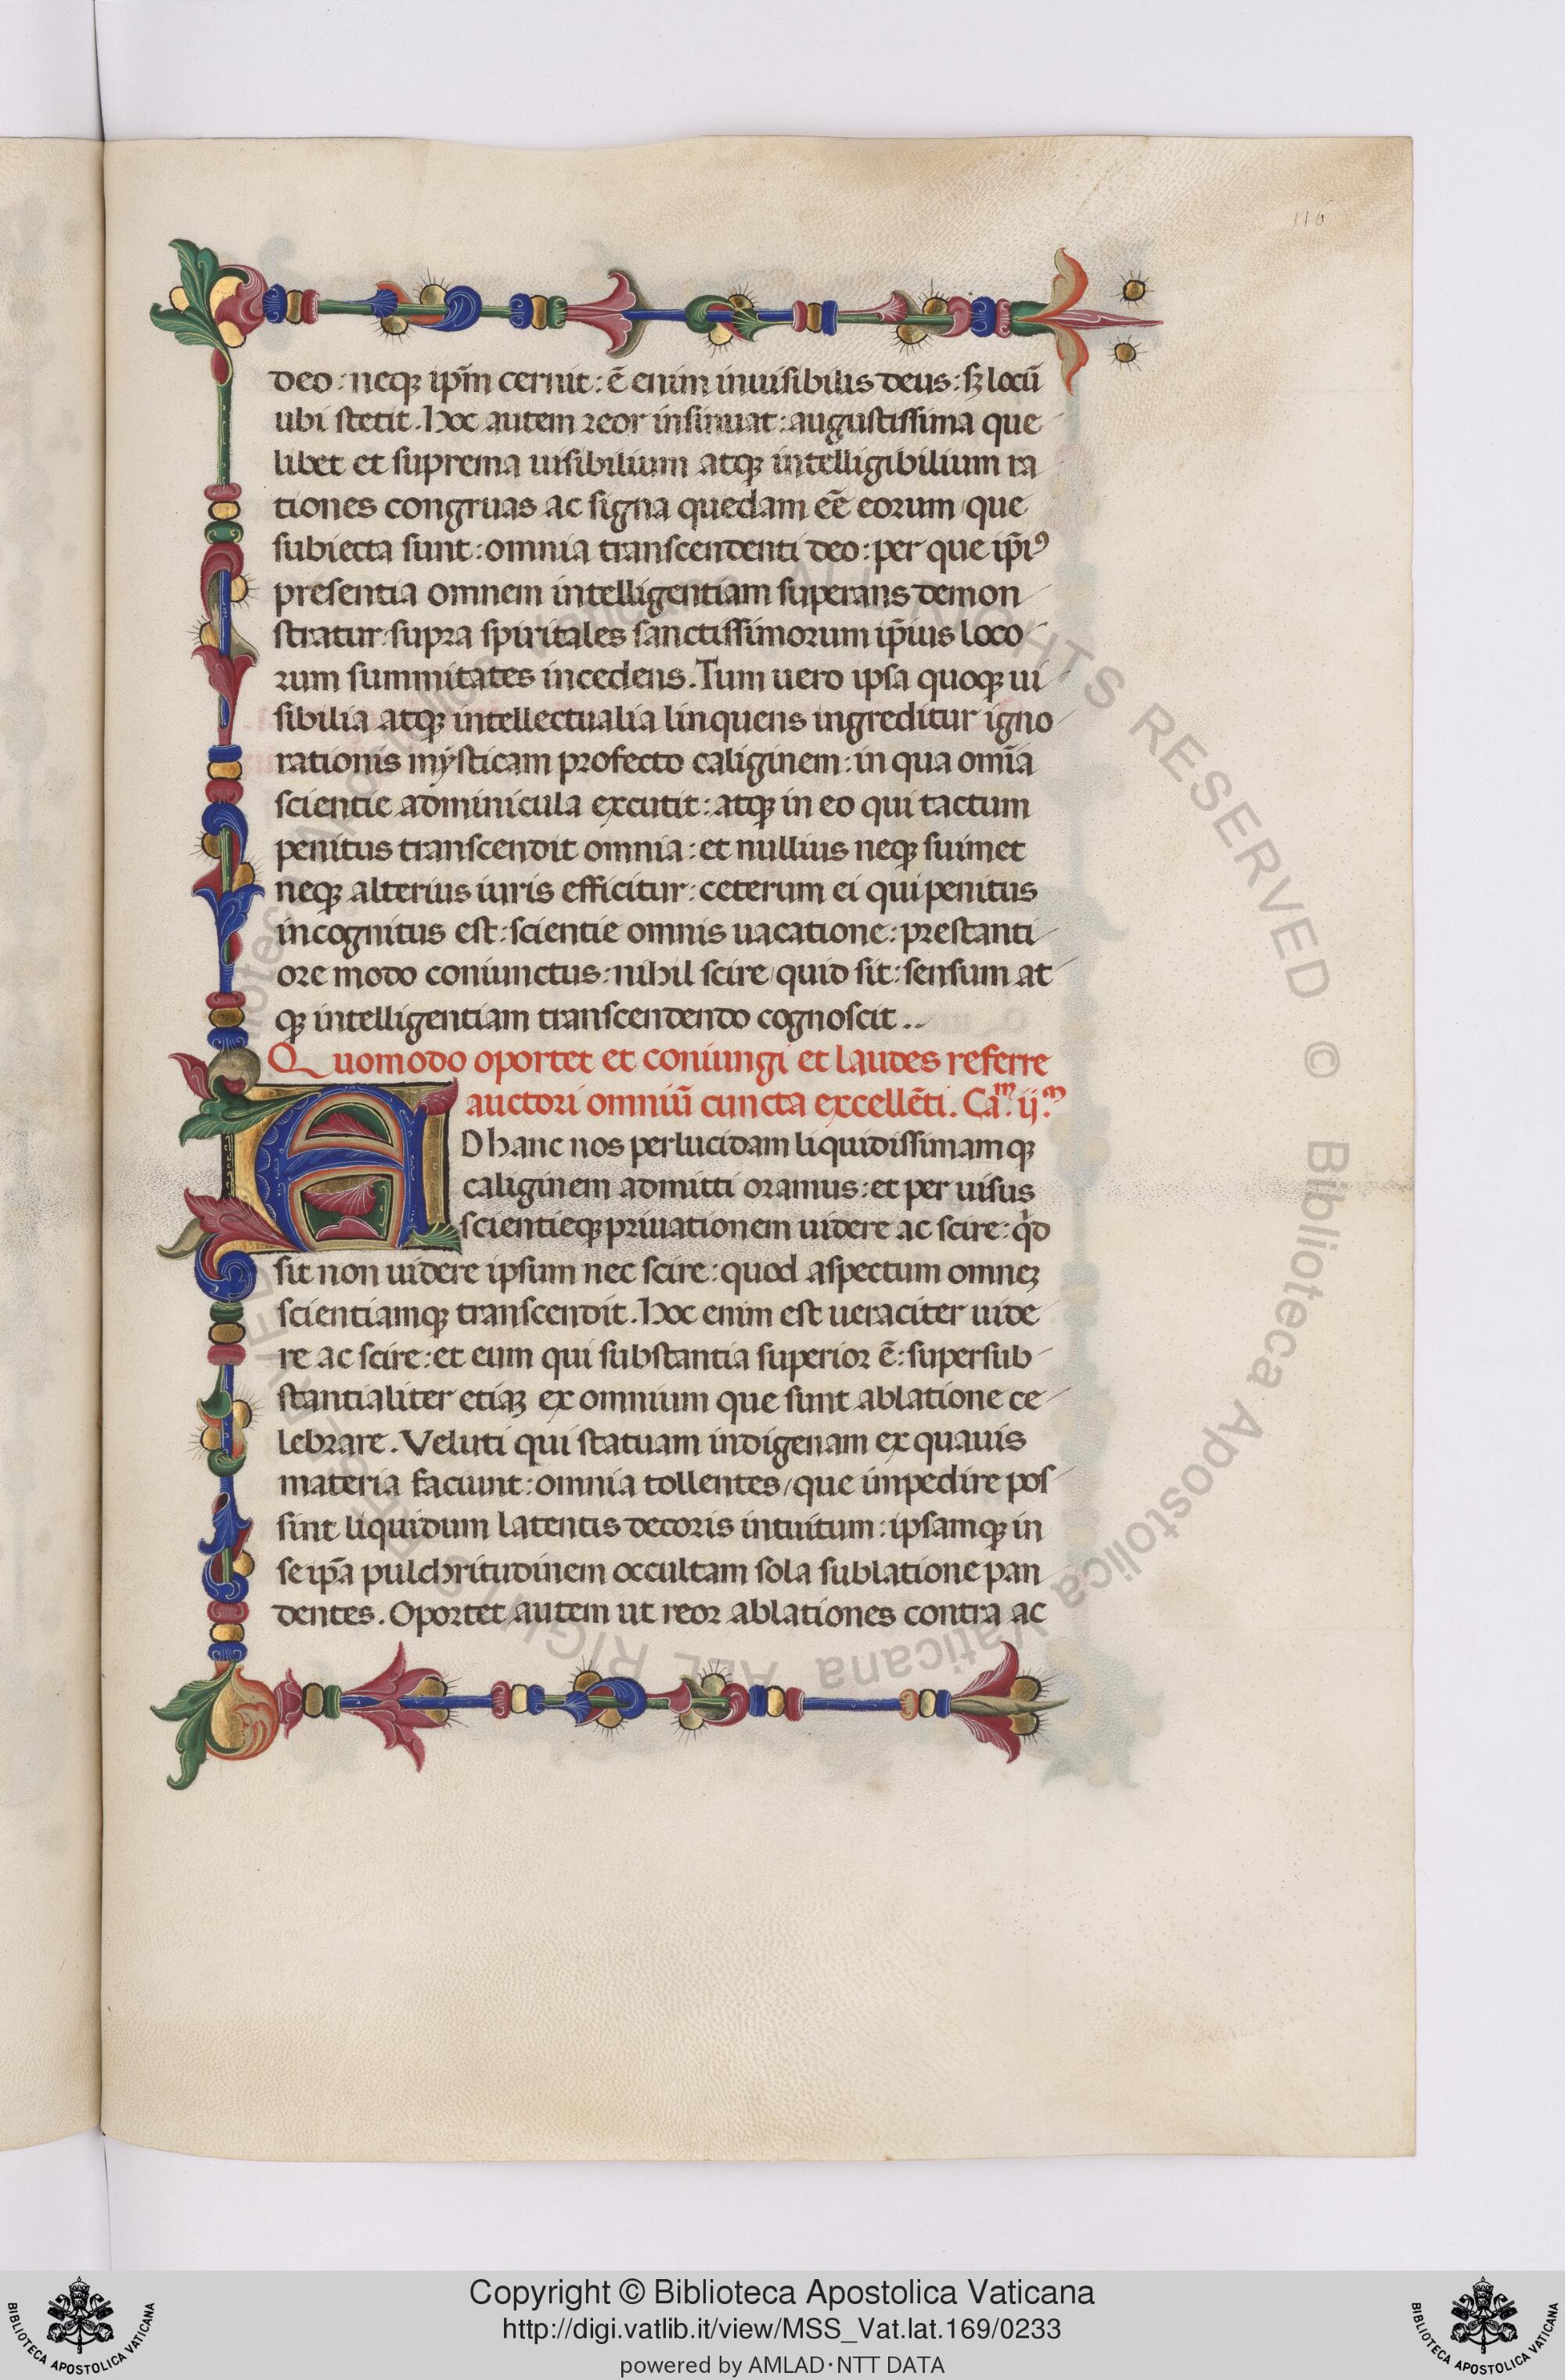 116
deo: neqꝫ ip̄m cernit: ē enim inuisibilis deus: sꝫ locū
ubi stetit. Hoc autem reor insinuat: augustissima que
libet et suprema uisibilium atqꝫ intelligibilium ra
tiones congruas ac signa quedam eē eorum/ que
subiecta sunt: omnia transcendenti deo: per que ip̄iꝰ
presentia omnem intelligentiam superans demon
stratur: supra spiritales sanctissimorum ip̄ius loco
rum summitates incedens. Tum uero ipsa quoqꝫ ui
sibilia atqꝫ intellectualia linquens ingreditur igno
rationis mysticam profecto caliginem: in qua om̄ia
scientie adminicula excutit: atqꝫ in eo qui tactum
penitus transcendit omnia: et nullius neqꝫ suimet
neqꝫ alterius iuris efficitur: ceterum ei qui penitus
incognitus est: scientie omnis uacatione: prestanti
ore modo coniunctus: nihil scire/ quid sit: sensum at
qꝫ intelligentiam transcendendo cognoscit..
Quomodo oportet et coniungi et laudes referre
auctori omniū cuncta excellēti. Caᵐ. ijᵐ.
AD hanc nos perlucidam liquidissimamqꝫ
caliginem admitti oramus: et per uisus
scientieqꝫ priuationem uidere ac scire: qd
sit non uidere ipsum nec scire: quod aspectum omneꝫ
scientiamqꝫ transcendit. Hoc enim est ueraciter uide
re ac scire: et eum qui substantia superior ē: supersub
stantialiter etiaꝫ ex omnium que sunt ablatione ce
lebrare. Veluti qui statuam indigenam ex quauis
materia faciunt: omnia tollentes/ que impedire pos
sint liquidum latentis decoris intuitum: ipsamqꝫ in
se ip̄a pulchritudinem occultam sola sublatione pan
dentes. Oportet autem ut reor ablationes contra ac
© Biblioteca Apostolica Vaticana ALL RIGHTS RESERVED
Copyright © Biblioteca Apostolica Vaticana
http://digi.vatlib.it/view/MSS_Vat.lat.169/0233
powered by AMLAD·NTT DATA
BIBLIOTECA APOSTOLICA VATICANA
BIBLIOTECA APOSTOLICA VATICANA